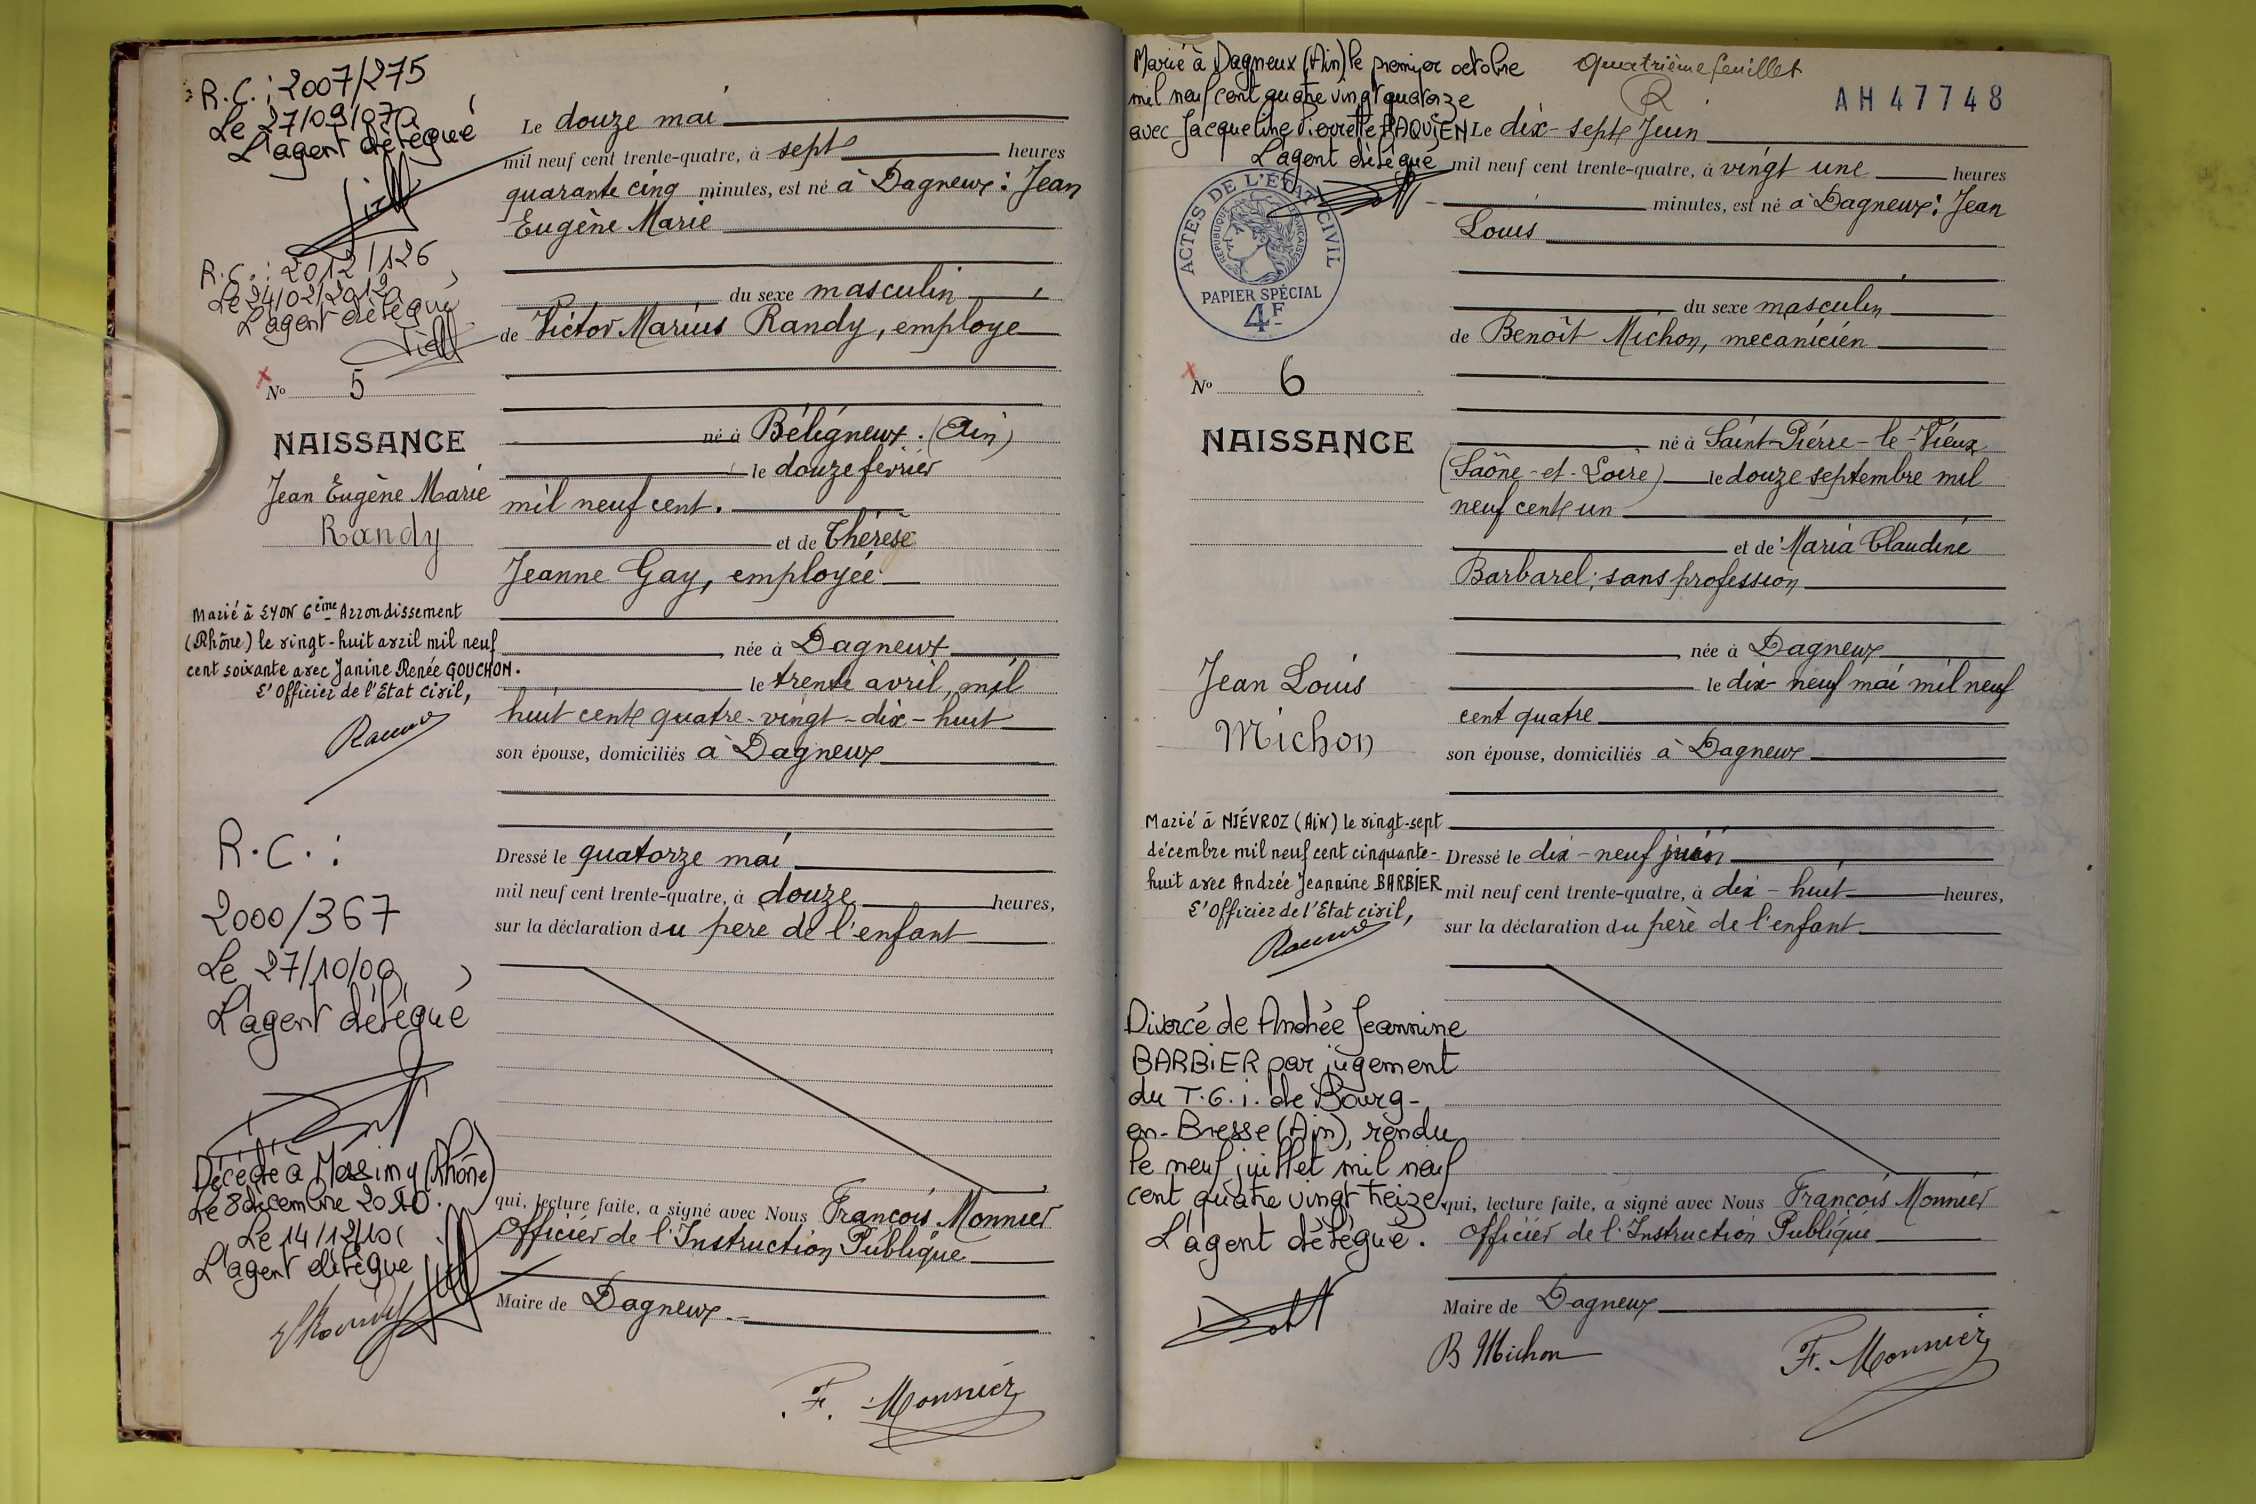 R.C.: 2007/275
Le 27/09/07
L'agent délégué
R.C.: 2012/126
Le 24/02/2012
L'agent délégué
No 5
NAISSANCE
Jean Eugène Marie
Randy
Marié à LYON 6ème Arrondissement
(Rhône) le vingt-huit avril mil neuf
cent soixante avec Janine Renée GOUCHON.
L'Officier de l'Etat civil,
R.C.:
2000/367
Le 27/10/00
L'agent délégué
Décédé à Messimy (Rhône)
Le 8 décembre 2010.
Le 14/12/10
L'agent délégué
Le douze mai
mil neuf cent trente-quatre, à sept heures
quarante cinq minutes, est né à Dagneux: Jean
Eugène Marie
du sexe masculin
de Victor Marius Randy, employe
né à Béligneux. (Ain)
le douze fevrier
mil neuf cent.
et de Thérèse
Jeanne Gay, employée
née à Dagneux
le trente avril mil
huit cent quatre-vingt-dix-huit
son épouse, domiciliés à Dagneux
Dressé le quatorze mai
mil neuf cent trente-quatre, à douze heures,
sur la déclaration du père de l'enfant
qui, lecture faite, a signé avec Nous François Monnier
Officier de l'Instruction Publique
Maire de Dagneux.
F. Monnier
Marié à Dagneux (Ain) le premier octobre
mil neuf cent quatre vingt quatorze
avec Jacqueline Pierrette PAQUIEN
L'agent délégué
ACTES DE L'ÉTAT CIVIL
RÉPUBLIQUE FRANÇAISE
PAPIER SPÉCIAL
4F
No 6
NAISSANCE
Jean Louis
Michon
Marié à NIÉVROZ (Ain) le vingt-sept
décembre mil neuf cent cinquante-
huit avec Andrée Jeannine BARBIER
L'Officier de l'Etat civil,
Divorcé de Andrée Jeannine
BARBIER par jugement
du T.G.i. de Bourg-
en-Bresse (Ain), rendu
le neuf juillet mil neuf
cent quatre vingt treize
L'agent délégué.
Quatrième feuillet
AH 47748
Le dix-sept Juin
mil neuf cent trente-quatre, à vingt une heures
minutes, est né à Dagneux: Jean
Louis
du sexe masculin
de Benoît Michon, mecanicien
né à Saint-Pierre-le-Vieux
(Saône-et-Loire) le douze septembre mil
neuf cent un
et de Maria Claudine
Barbarel, sans profession
née à Dagneux
le dix-neuf mai mil neuf
cent quatre
son épouse, domiciliés à Dagneux
Dressé le dix-neuf juin
mil neuf cent trente-quatre, à dix-huit heures,
sur la déclaration du père de l'enfant
qui, lecture faite, a signé avec Nous François Monnier
Officier de l'Instruction Publique
Maire de Dagneux
B Michon
F. Monnier